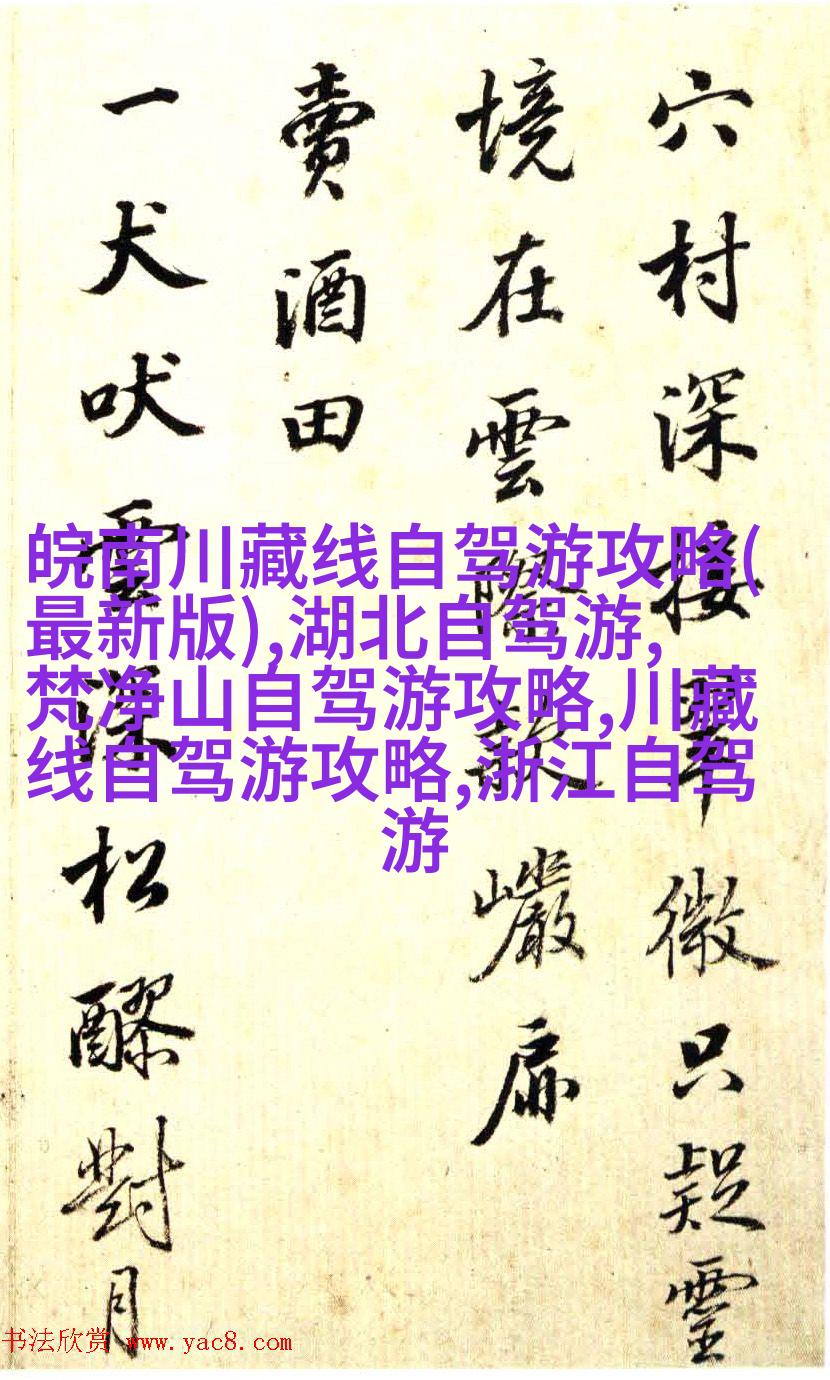 穴村深接翠微只疑靈
境在雲巖扉
賣酒田
一犬吠雲深松醪對月
皖南川藏线自驾游攻略(
最新版),湖北自驾游,
梵净山自驾游攻略,川藏
线自驾游攻略,浙江自驾
游
书法欣赏 www.yac8.com